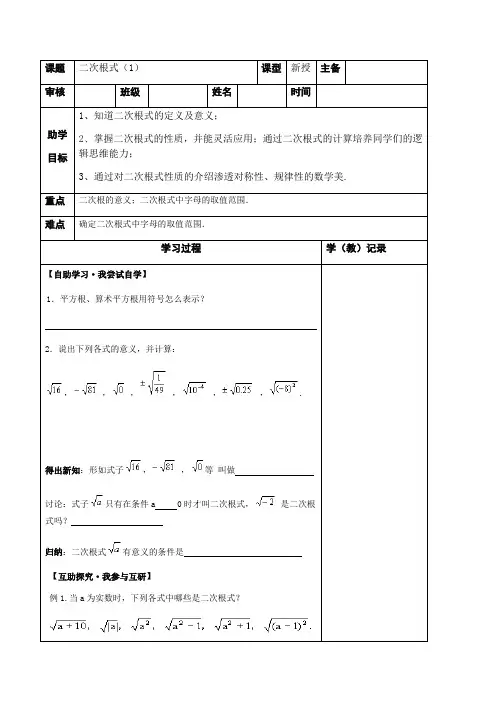 课题 二次根式（1） 课型 新授 主备
审核 班级 姓名 时间
助学
目标
1、知道二次根式的定义及意义；
2、掌握二次根式的性质，并能灵活应用；通过二次根式的计算培养同学们的逻
辑思维能力；
3、通过对二次根式性质的介绍渗透对称性、规律性的数学美.
重点 二次根的意义；二次根式中字母的取值范围.
难点 确定二次根式中字母的取值范围.
学习过程 学（教）记录
【自助学习·我尝试自学】
1．平方根、算术平方根用符号怎么表示？
2．说出下列各式的意义，并计算：
√16，-√81，√0，±√(1/49)，√(10⁻⁴)，±√0.25，√((-8)²).
得出新知：形如式子√16，-√81，√0等 叫做
讨论：式子√a只有在条件a 0时才叫二次根式，√-2 是二次根
式吗？
归纳：二次根式√a有意义的条件是
【互助探究·我参与互研】
例1.当a为实数时，下列各式中哪些是二次根式？
√(a+10)，√|a|，√(a²)，√(a²-1)，√(a²+1)，√((a-1)²).